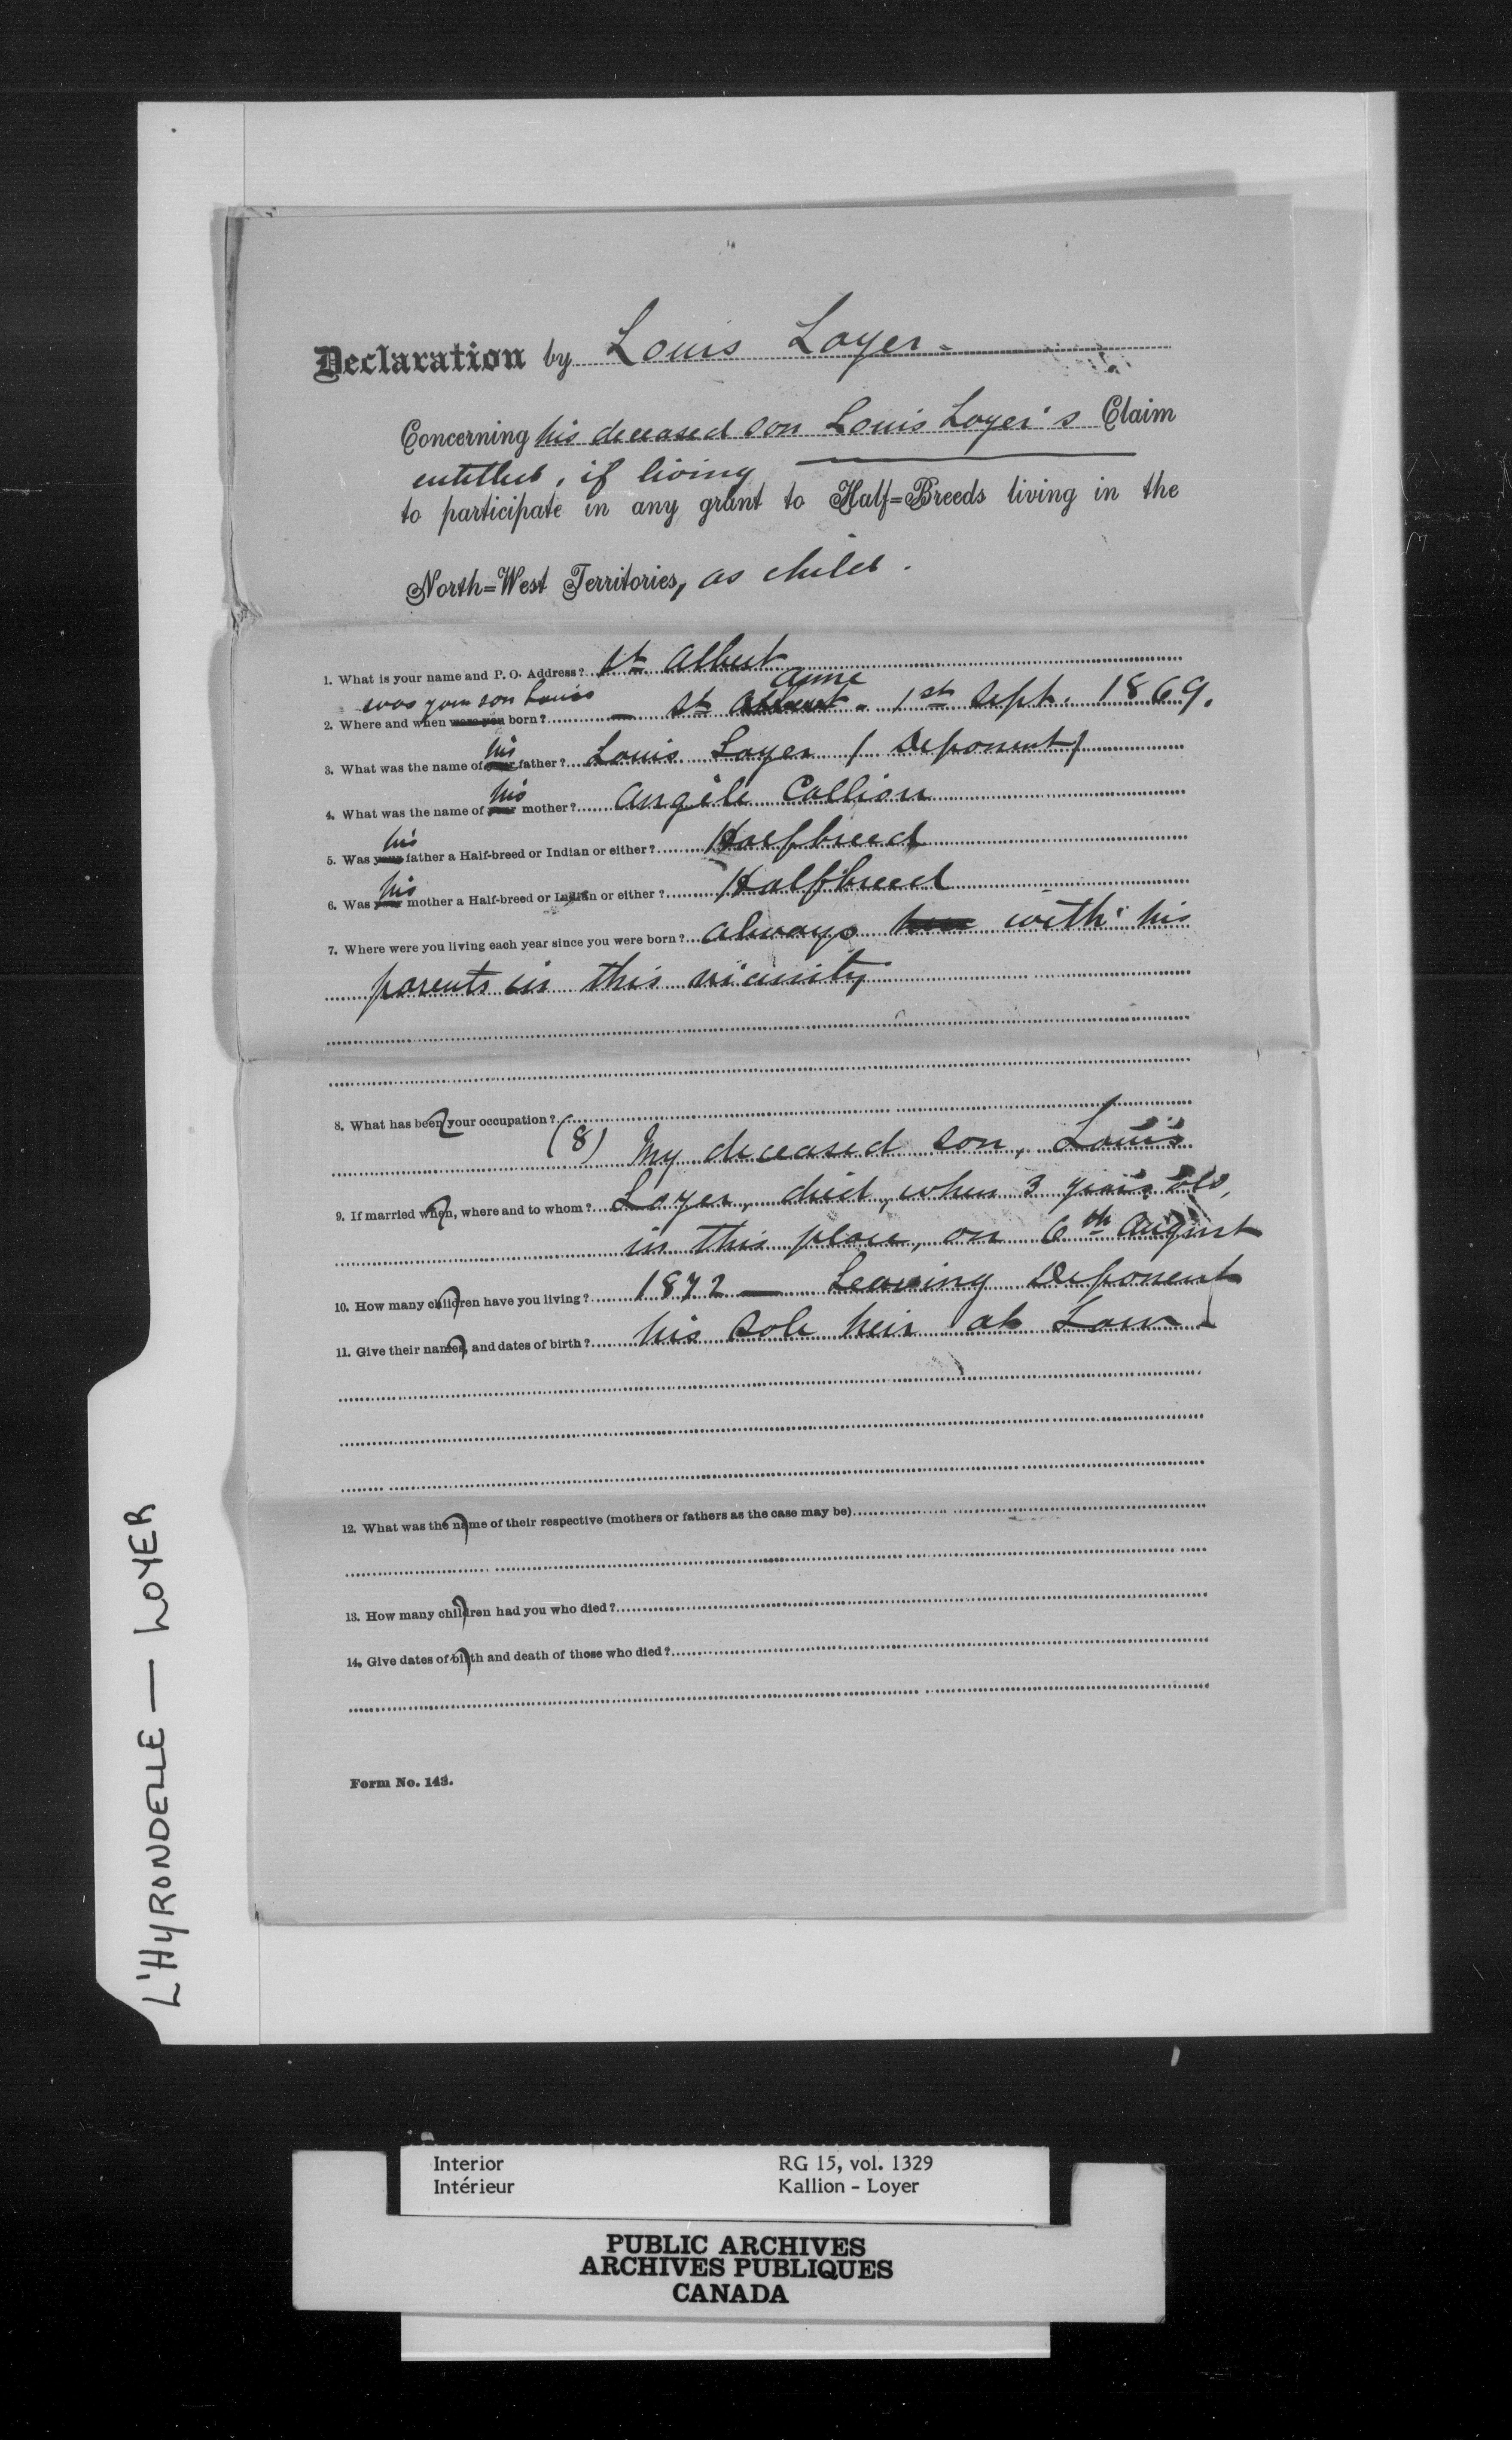 Declaration by Louis Loyer -
Concerning his deceased son Louis Loyer's Claim
entitled, if living
to participate in any grant to Half=Breeds living in the
North=West Territories, as child.
1. What is your name and P. O. Address? St Albert
was your son Louis Anne
2. Where and when were you born? — St Albert - 1st Sept. 1869.
his
3. What was the name of your father? Louis Loyer (Deponent)
his
4. What was the name of your mother? Angèle Callion
his
5. Was your father a Half-breed or Indian or either? Halfbreed
his
6. Was your mother a Half-breed or Indian or either? Halfbreed
7. Where were you living each year since you were born? always with his
parents in this vicinity
8. What has been your occupation?
(8) My deceased son, Louis
9. If married when, where and to whom? Loyer, died, when 3 years old,
in this place, on 6th August
10. How many children have you living? 1872 — Leaving Deponent
11. Give their names, and dates of birth? his sole heir at Law
12. What was the name of their respective (mothers or fathers as the case may be)
13. How many children had you who died?
14. Give dates of birth and death of those who died?
Form No. 143.
L'HYRONDELLE — LOYER
Interior RG 15, vol. 1329
Intérieur Kallion - Loyer
PUBLIC ARCHIVES
ARCHIVES PUBLIQUES
CANADA